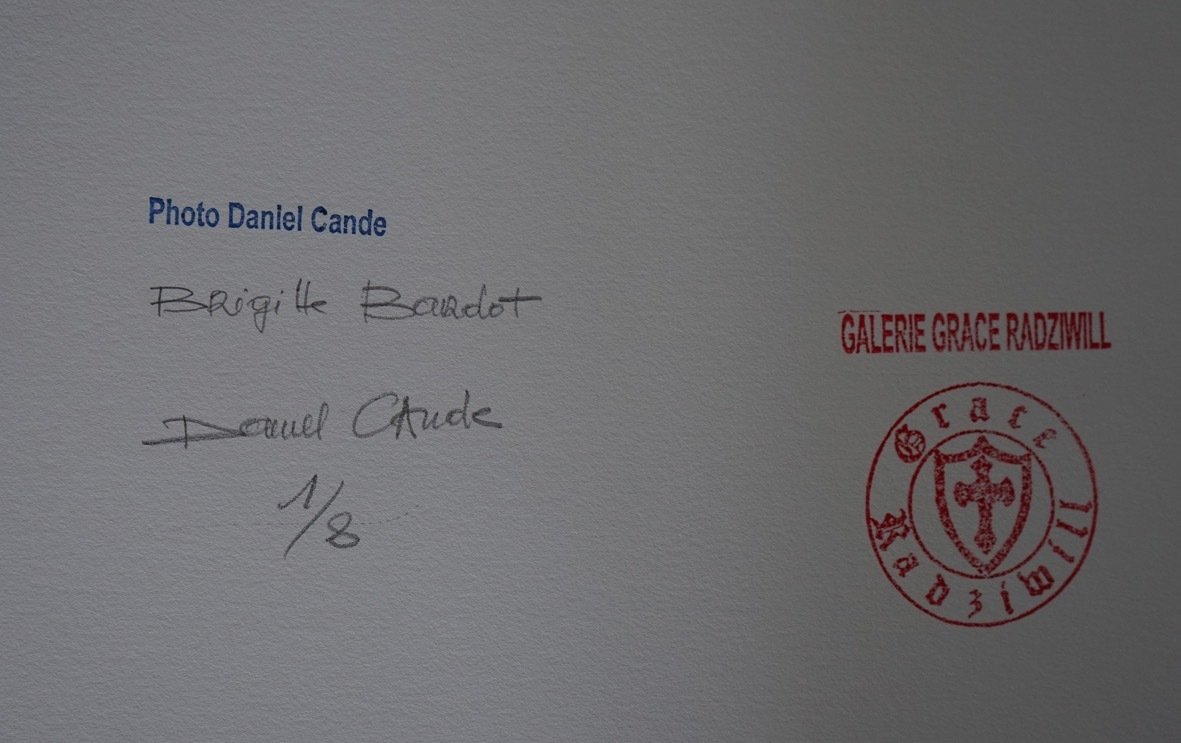 Photo Daniel Cande
Brigitte Bardot
Daniel CAnde
1/8
GALERIE GRACE RADZIWILL
Grace
Radziwill